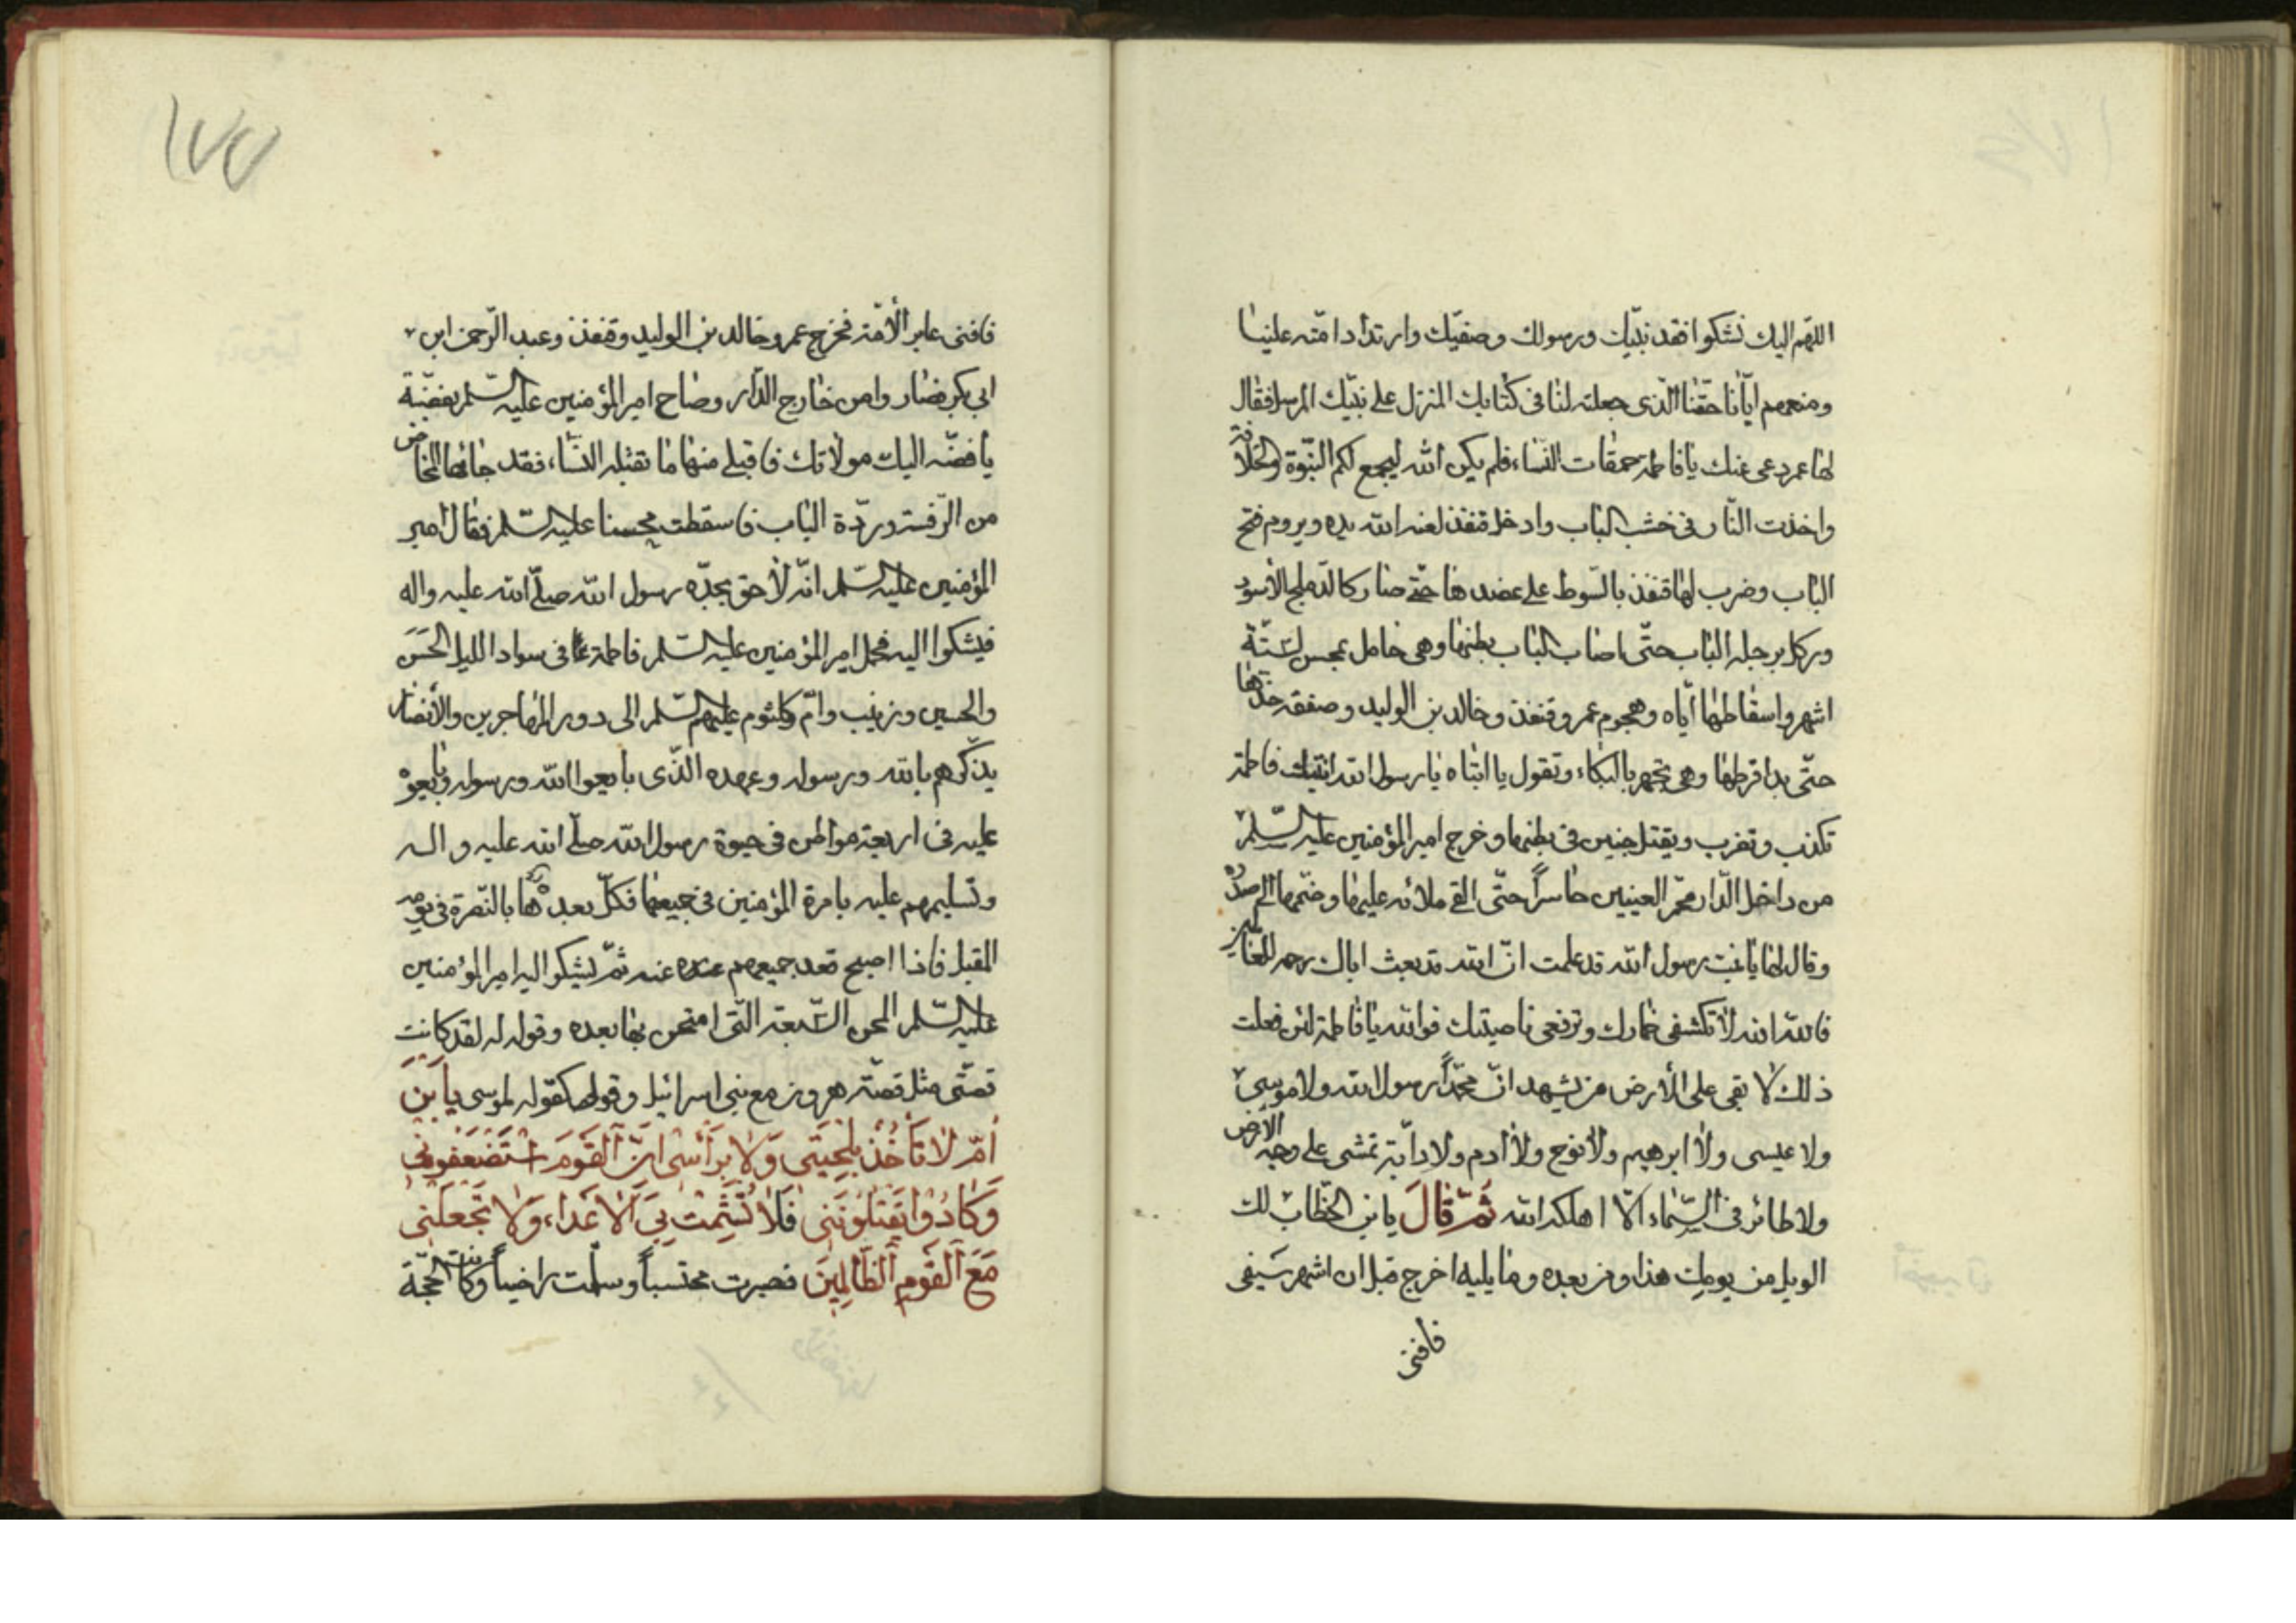 اللهم اليك نشكوا فقد نبيّك ورسولك وصفيّك وارتداد امّته علينا
ومنعهم ايّانا حقّنا الّذى جعلته لنا فى كتابك المنزل على نبيّك المرسل فقال
لها عمر دعى عنك يا فاطمة حمقات النّساء فلم يكن الله ليجمع لكم النبّوة والخلافة
واخذت النّار فى خشب الباب وادخل قنفذ لعنه الله يده ويروم فتح
الباب وضرب لها قنفذ بالسّوط على عضدها حتّى صار كالدّملج الأسود
وركل برجله الباب حتّى اصاب الباب بطنها وهى حامل بمحسن لستّة
اشهر واسقاطها ايّاه وهجوم عمر وقنفذ وخالد بن الوليد وصفقه خدّها
حتّى بدا قرطها وهى تجهر بالبكاء وتقول يا ابتاه يا رسول الله ابنتك فاطمة
تكذب وتضرب ويقتل جنين فى بطنها وخرج امير المؤمنين عليه السّلم
من داخل الدّار محمّر العينين حاسراً حتّى القى ملائه عليها وضمّها الى صدره
وقال لها يا بنت رسول الله قد علمت انّ الله قد بعث اباك رحمة للعالمين
فالله الله لا تكشفى خمارك وترفعى ناصيتك فوالله يا فاطمة لئن فعلت
ذلك لا بقى على الأرض من يشهد انّ محمّداً رسول الله ولا موسى
ولا عيسى ولا ابرهيم ولا نوح ولا آدم ولا دابّة تمشى على وجه الارض
ولا طائر فى السّماء الّا اهلكه الله ثمّ قالَ يا بن الخطّاب لك
الويل من يومك هذا ومن بعده وما يليه اخرج قبل ان اشهر سيفى
فافنى
١٧٧
فافنى غابر الأمّة فخرج عمر وخالد بن الوليد وقنفذ وعبد الرّحمن ابن
ابى بكر فصاروا من خارج الدّار وصاح امير المؤمنين عليه السّلم بفضّة
يا فضّه اليك مولاتك فاقبلى منها ما تقبله النّساء فقد جائها المخاض
من الرّفسة وردّة الباب فاسقطت محسنا عليه السّلم فقال امير
المؤمنين عليه السّلم انّه لاحق بجدّه رسول الله صلّى الله عليه واله
فيشكوا اليه فحمل امير المؤمنين عليه السّلم فاطمة ع فى سواد الليل الحَسَن
والحسين وزينب وامّ كلثوم عليهم السّلم الى دور المهاجرين والأنصار
يذكّرهم بالله ورسوله وعهده الّذى بايعوا الله ورسوله وبايعوه
عليه فى اربعة مواطن فى حيوة رسول الله صلّى الله عليه واله
وتسليمهم عليه بامرة المؤمنين فى جميعها فكلّ يعده بالنّصرة فى يومه
المقبل فاذا اصبح قعد جميعهم عنه ثمّ يشكوا اليه امير المؤمنين
عليه السّلم المحن السّبعة الّتى امتحن بها بعده وقوله له لقد كانت
قصّتى مثل قصّة هرون مع بنى اسرائيل وقولى كقوله لموسى يا ابْنَ
اُمّ لاٰ تَأخُذْ بِلِحْيَتى وَلاٰ بِرَأْسى اِنّ اَلقَوْمَ اسْتَضْعَفُونى
وَكَادُوْا يَقْتُلوُنَنى فَلاٰ تُشْمِتْ بِىَ الْاَعْدَاءَ وَلاٰ تَجْعَلْنى
مَعَ اَلْقَوْمِ اَلظّالِمِينَ فصبرت محتسباً وسلّمت راضياً وكانت الحجّة